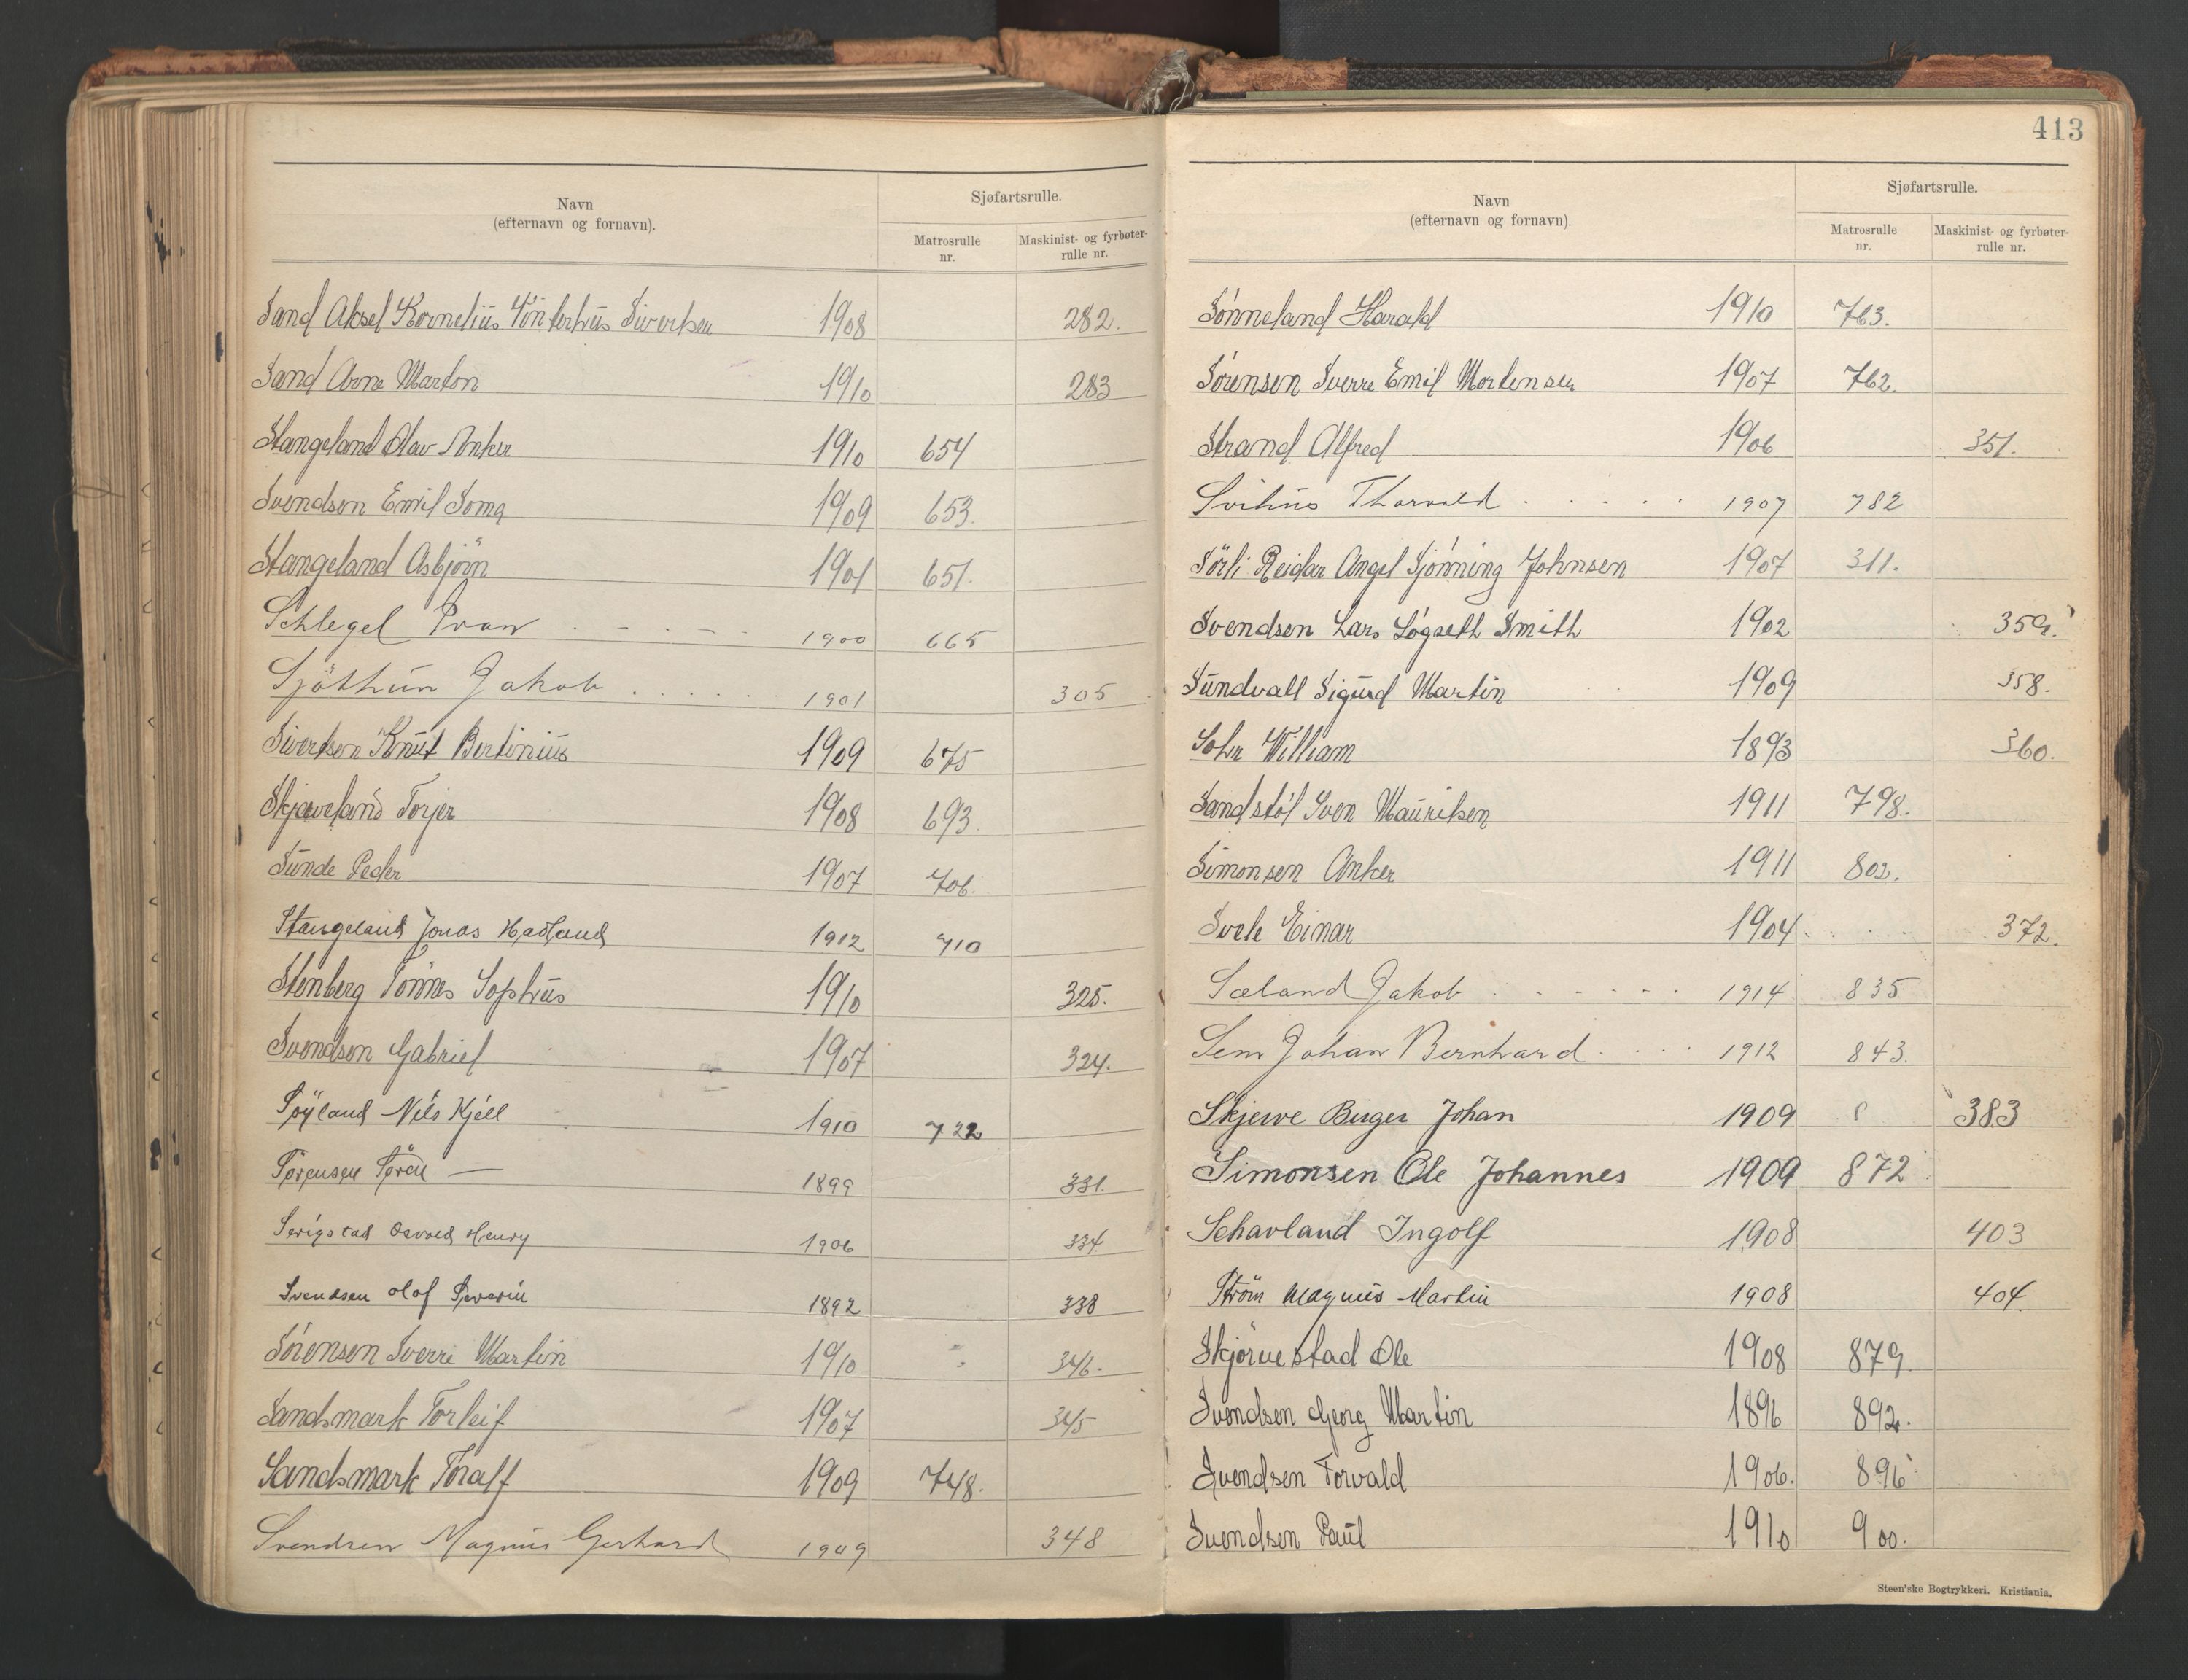 Navn
(efternavn og fornavn).
Sjøfartsrulle.
Matrosrulle nr.
Maskinist- og fyrbøter-rulle nr.
Sand Aksel Kornelius Vinterhus Sivertsen 1908 282.
Sand Arne Marton 1910 283
Stangeland Olav Anker 1910 654
Svendsen Emil Soma 1909 653.
Stangeland Asbjörn 1901 651.
Schlegel Ivan 1900 665
Sjöthun Jakob 1901 305
Sivertsen Knut Bertinius 1909 675
Skjæveland Torjer 1908 693
Sunde Peder 1907 706.
Stangeland Jonas Hadland 1912 710
Stenberg Tönnes Sophus 1910 325.
Svendsen Gabriel 1907 324.
Söyland Nils Kjell 1910 722
Sörensen Sören — 1899 331.
Serigstad Osvald Henry 1906 334
Svendsen Olof Severin 1892 338
Sörensen Sverre Martin 1910 346.
Sandsmark Torleif 1907 345
Sandsmark Toralf 1909 748.
Svendsen Magnus Gerhard 1909 348
413
Navn
(efternavn og fornavn).
Sjøfartsrulle.
Matrosrulle nr.
Maskinist- og fyrbøter-rulle nr.
Sónneland Harald 1910 763.
Sórensen Sverre Emil Mortensen 1907 762.
Strand Alfred 1906 351.
Svihus Thorvald 1907 782
Sörli Reidar Angel Sjönning Johnsen 1907 311.
Svendsen Lars Lógseth Smith 1902 359.
Sundvall Sigurd Martin 1909 358.
Sohr William 1893 360.
Sandstól Sven Mauritsen 1911 798.
Simonsen Anker 1911 802.
Svele Einar 1904 372.
Sæland Jakob 1914 835
Sem Johan Bernhard 1912 843.
Skjerve Birger Johan 1909 383
Simonsen Ole Johannes 1909 872
Schavland Ingolf 1908 403
Ström Magnus Martin 1908 404.
Skjörvestad Ole 1908 879.
Svendsen Georg Martin 1896 892.
Svendsen Torvald 1906. 896
Svendsen Paul 1910 900.
Steen'ske Bogtrykkeri. Kristiania.